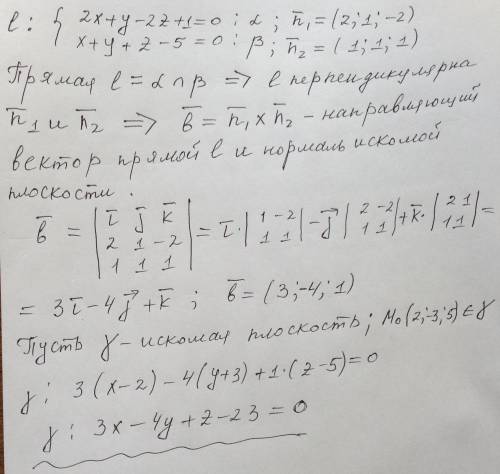 l: { 2x+y-2z+1=0 : α ; n̅₁=(2;1;-2)
x+y+z-5=0 : β ; n̅₂=(1;1;1)
Прямая l = α ∩ β ⟹ l перпендикулярна
n̅₁ и n̅₂ ⟹ b̅ = n̅₁ × n̅₂ - направляющий
вектор прямой l и нормаль искомой
плоскости.
b̅ = | i̅ j̅ k̅ ; 2 1 -2 ; 1 1 1 | = i̅·| 1 -2 ; 1 1 | - j⃗ | 2 -2 ; 1 1 | + k̅·| 2 1 ; 1 1 | =
= 3i̅ - 4j⃗ + k̅ ; b̅ = (3;-4;1)
Пусть γ - искомая плоскость; M₀(2;-3;5) ∈ γ
γ: 3(x-2)-4(y+3)+1·(z-5)=0
γ: 3x-4y+z-23=0